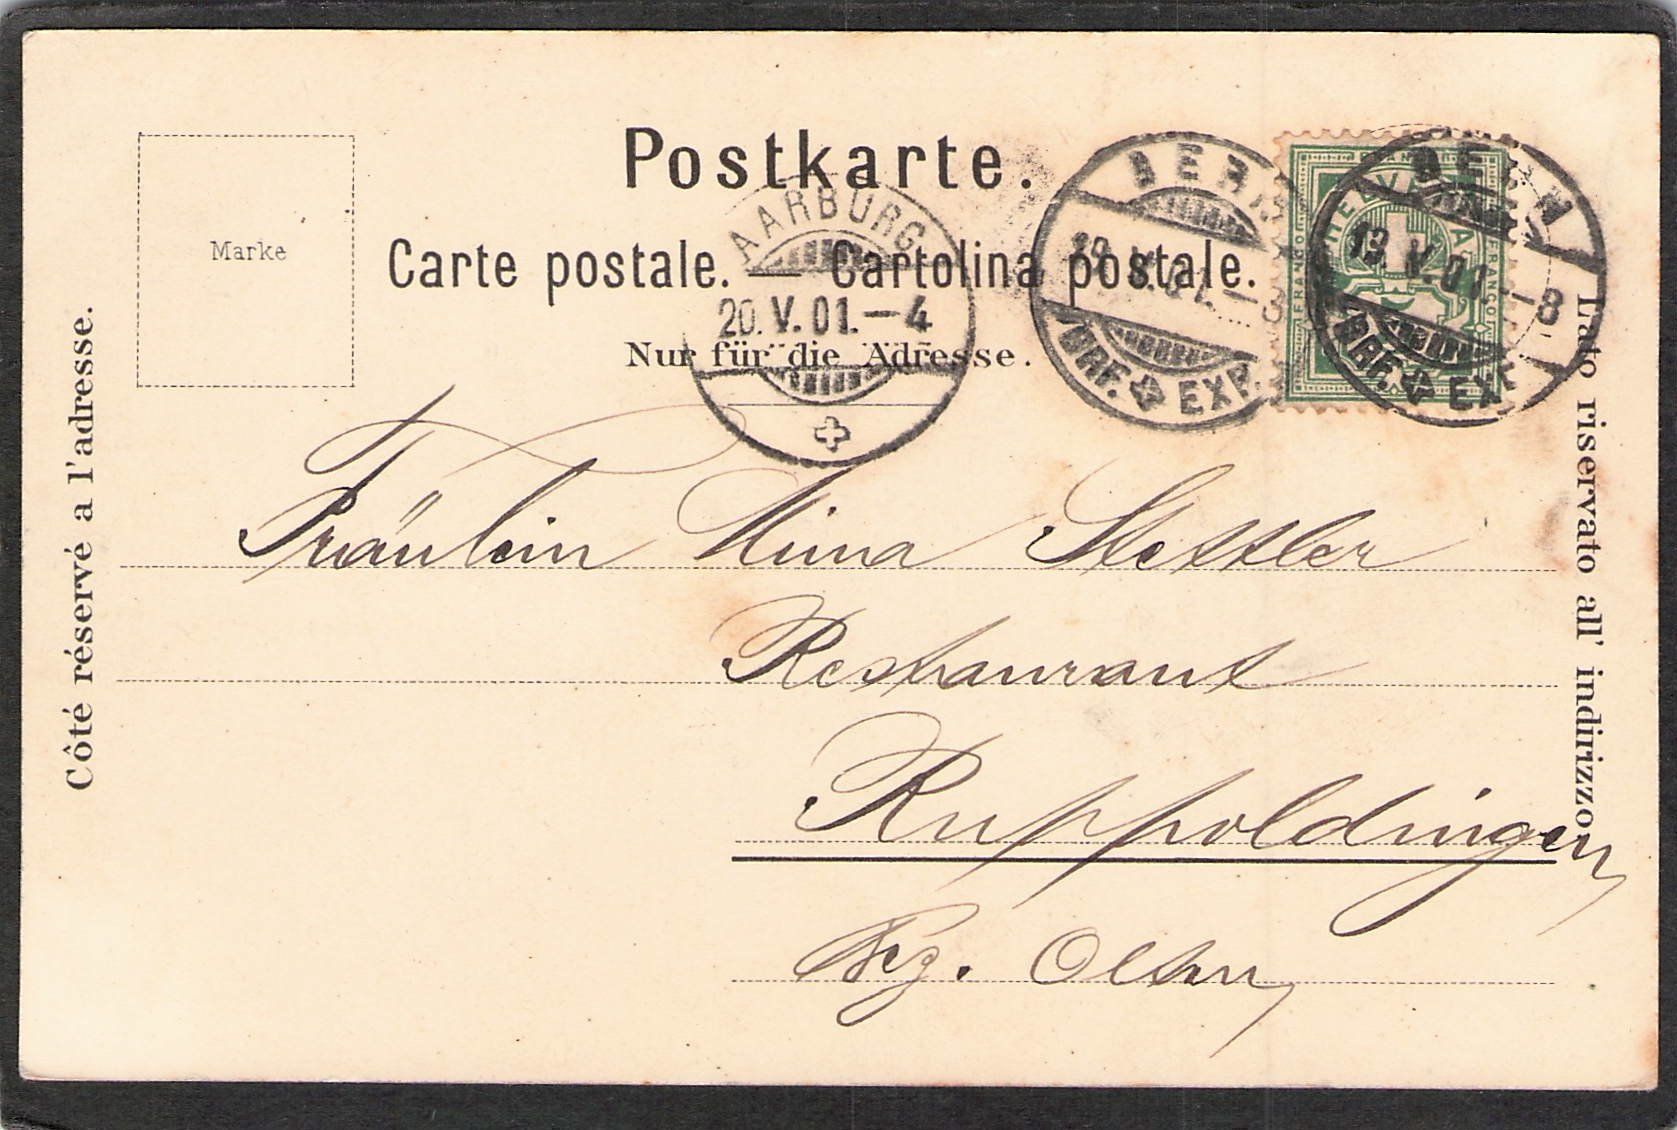 Postkarte.
Marke
Carte postale. — Cartolina postale.
Nur für die Adresse.
AARBURG
20. V. 01. – 4
BERN
V. 01. – 8
BRF. EXP.
BERN
V. 01. – 8
BRF. EXP.
HELVETIA
FRANCO
FRANCO
Côté réservé a l'adresse.
Lato riservato all' indirizzo.
Fräulein Mina Stettler
Restaurant
Ruppoldingen
Bez. Olten